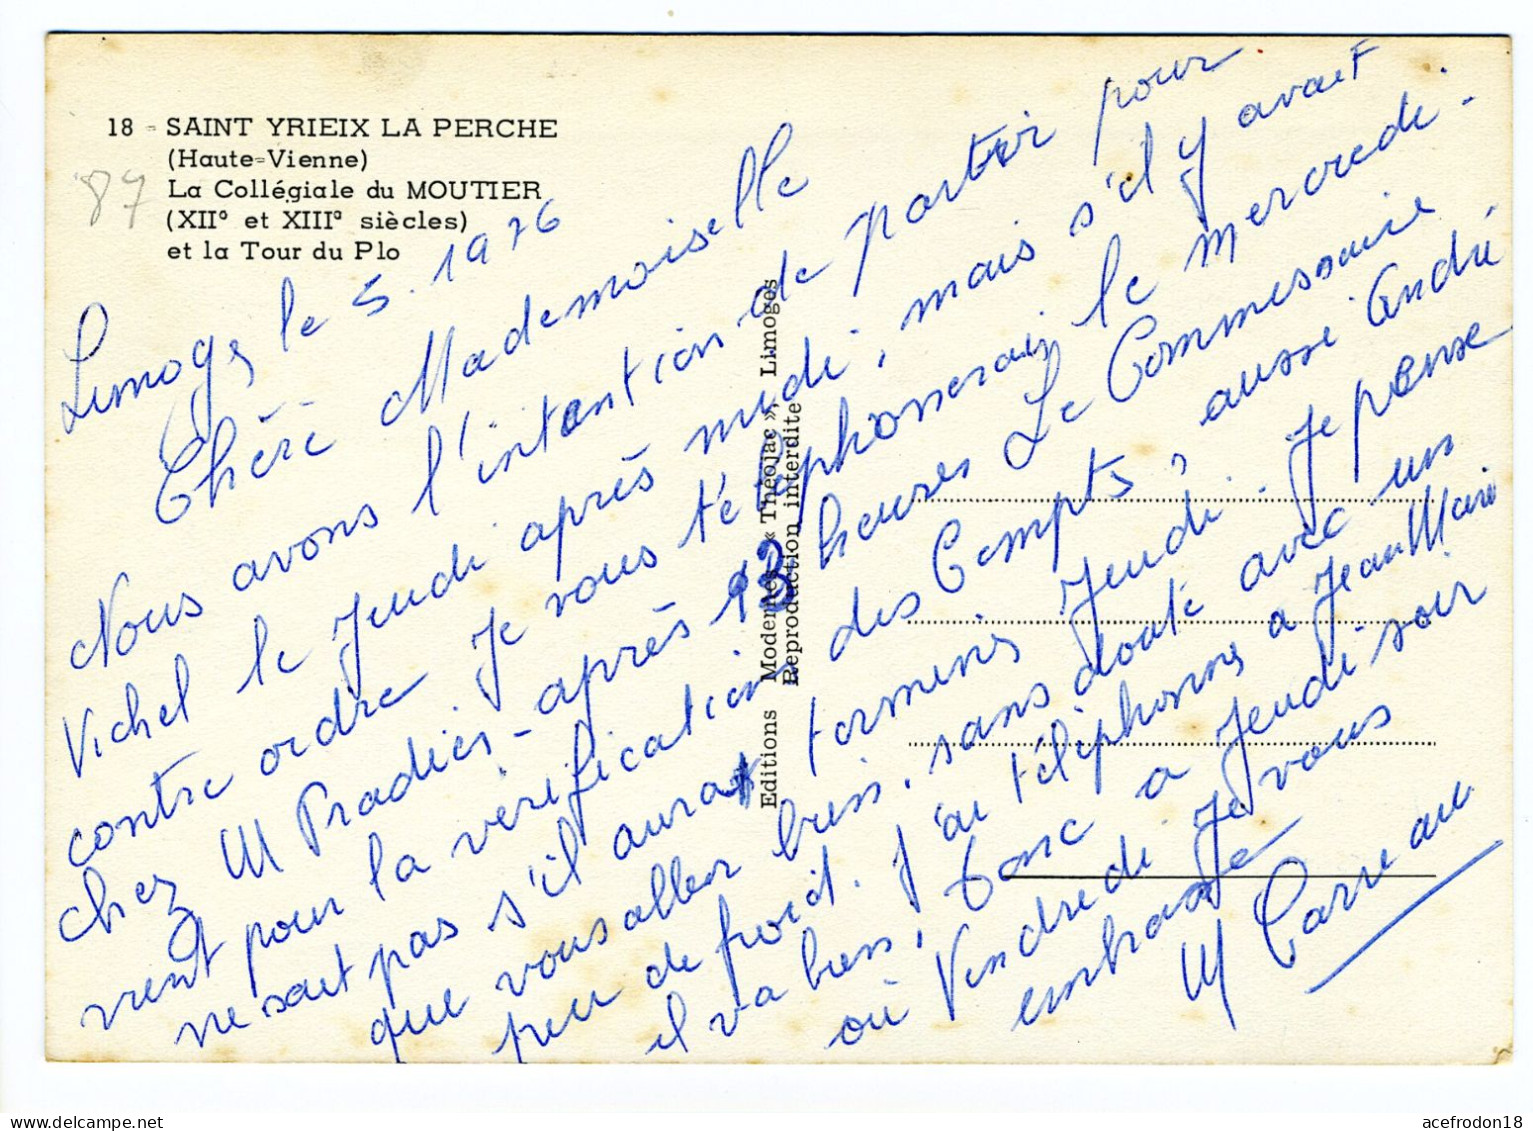 18 - SAINT YRIEIX LA PERCHE
(Haute-Vienne)
La Collégiale du MOUTIER
(XIIe et XIIIe siècles)
et la Tour du Plo
87
Limoges le 5. 1976
Chère Mademoiselle
Nous avons l'intention de partir pour
Vichel le Jeudi après midi, mais s'il y avait
contre ordre Je vous téléphonerais le Mercredi.
chez M Pradier - après 13 heures Le Commessaire
vient pour la vérification des Compts, aussi André
ne sait pas s'il aurat terminés Jeudi. Je pense
que vous aller bien, sans doute avec un
peu de froid. J'ai téléphonné a Jean Marie
il va bien, Donc a Jeudi soir
où Vendredi. Je vous
embrasse
M Carreau
Editions Modernes « Théojac », Limoges
Reproduction interdite
acefrodon18